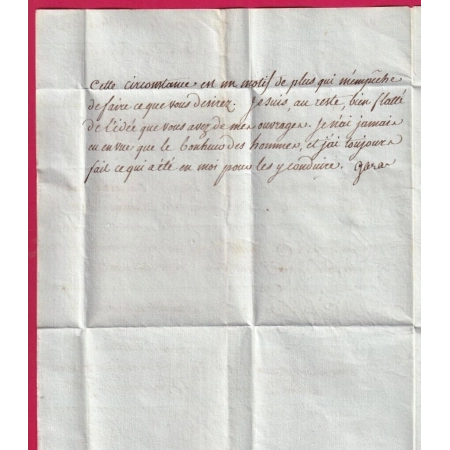 Cette circonstance est un motif de plus qui m'empêche
de faire ce que vous desirez. Je suis, au reste, bien flatté
de l'idée que vous avez de mes ouvrages. Je n'ai jamais
eu en vue que le bonheur des hommes, et j'ai toujours
fait ce qui a été en moi pour les y conduire.